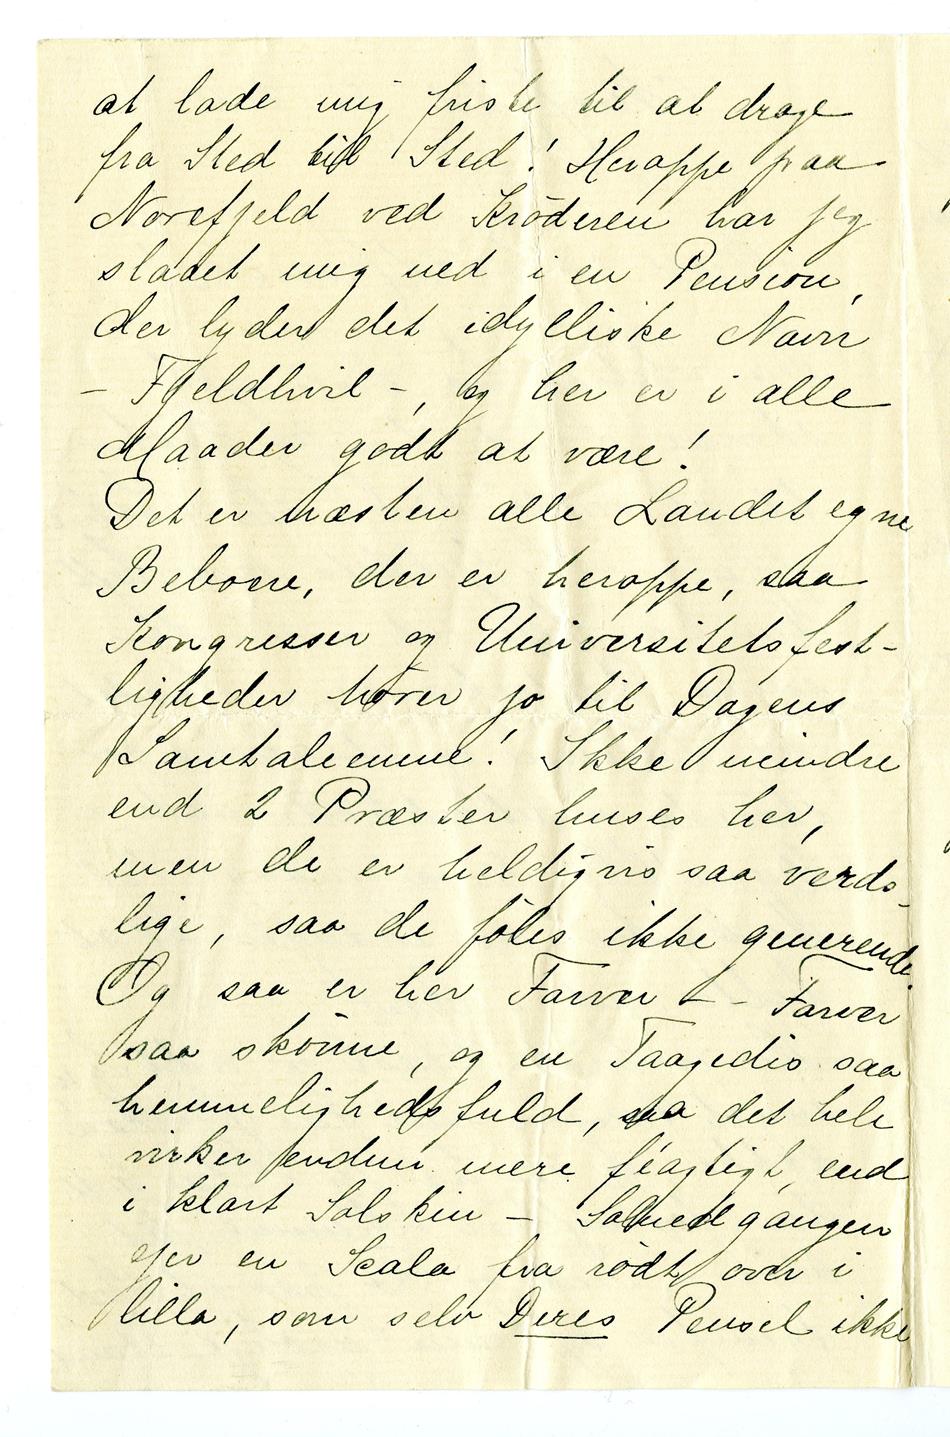 at lade mig friste til at drage
fra Sted til Sted! Heroppe paa
Norefjeld ved Krøderen har jeg
slaaet mig ned i en Pension,
der lyder det idylliske Navn
– Fjeldhvil –, og her er i alle
Maader godt at være!
Det er næsten alle Landet egne
Beboere, der er heroppe, saa
Kongresser og Universitetsfest-
ligheder hører jo til Dagens
Samtaleemne! Ikke mindre
end 2 Præster huses her,
men de er heldigvis saa verds-
lige, saa de føles ikke generende.
Og saa er her Farver – – Farver
saa skønne, og en Taagedis saa
hemmelighedsfuld, saa det hele
virker endnu mere féagtigt, end
i klart Solskin – Solnedgangen
ejer en Scala fra rødt over i
lilla, som selv Deres Pensel ikke